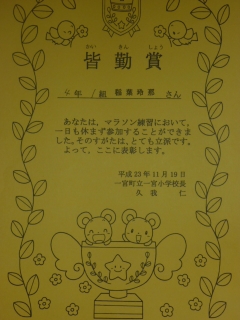 かい きん しょう
皆勤賞
4年 1組 稲葉玲那 さん
あなたは、マラソン練習において、
一日も休まず参加することができま
した。そのすがたは、とても立派です。
よって、ここに表彰します。
平成23年11月19日
一宮町立一宮小学校長
久我 仁